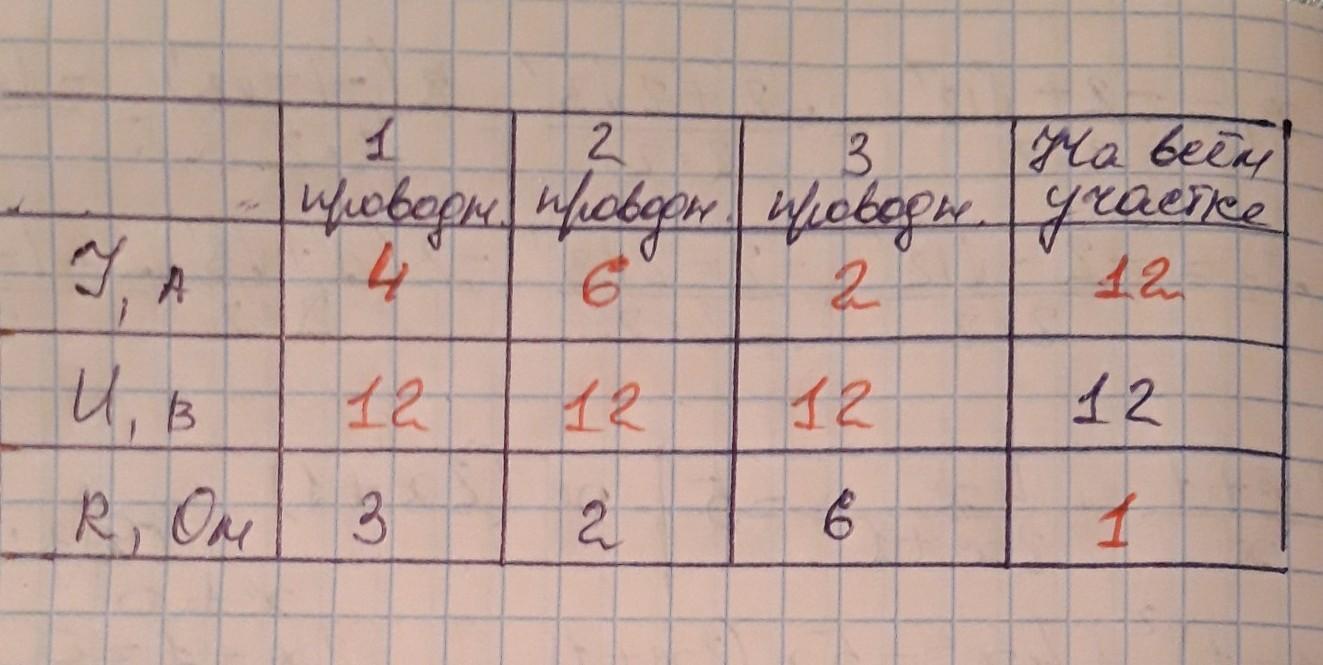 1 2 3 На всём
проводн. проводн. проводн. участке
I, А 4 6 2 12
U, В 12 12 12 12
R, Ом 3 2 6 1